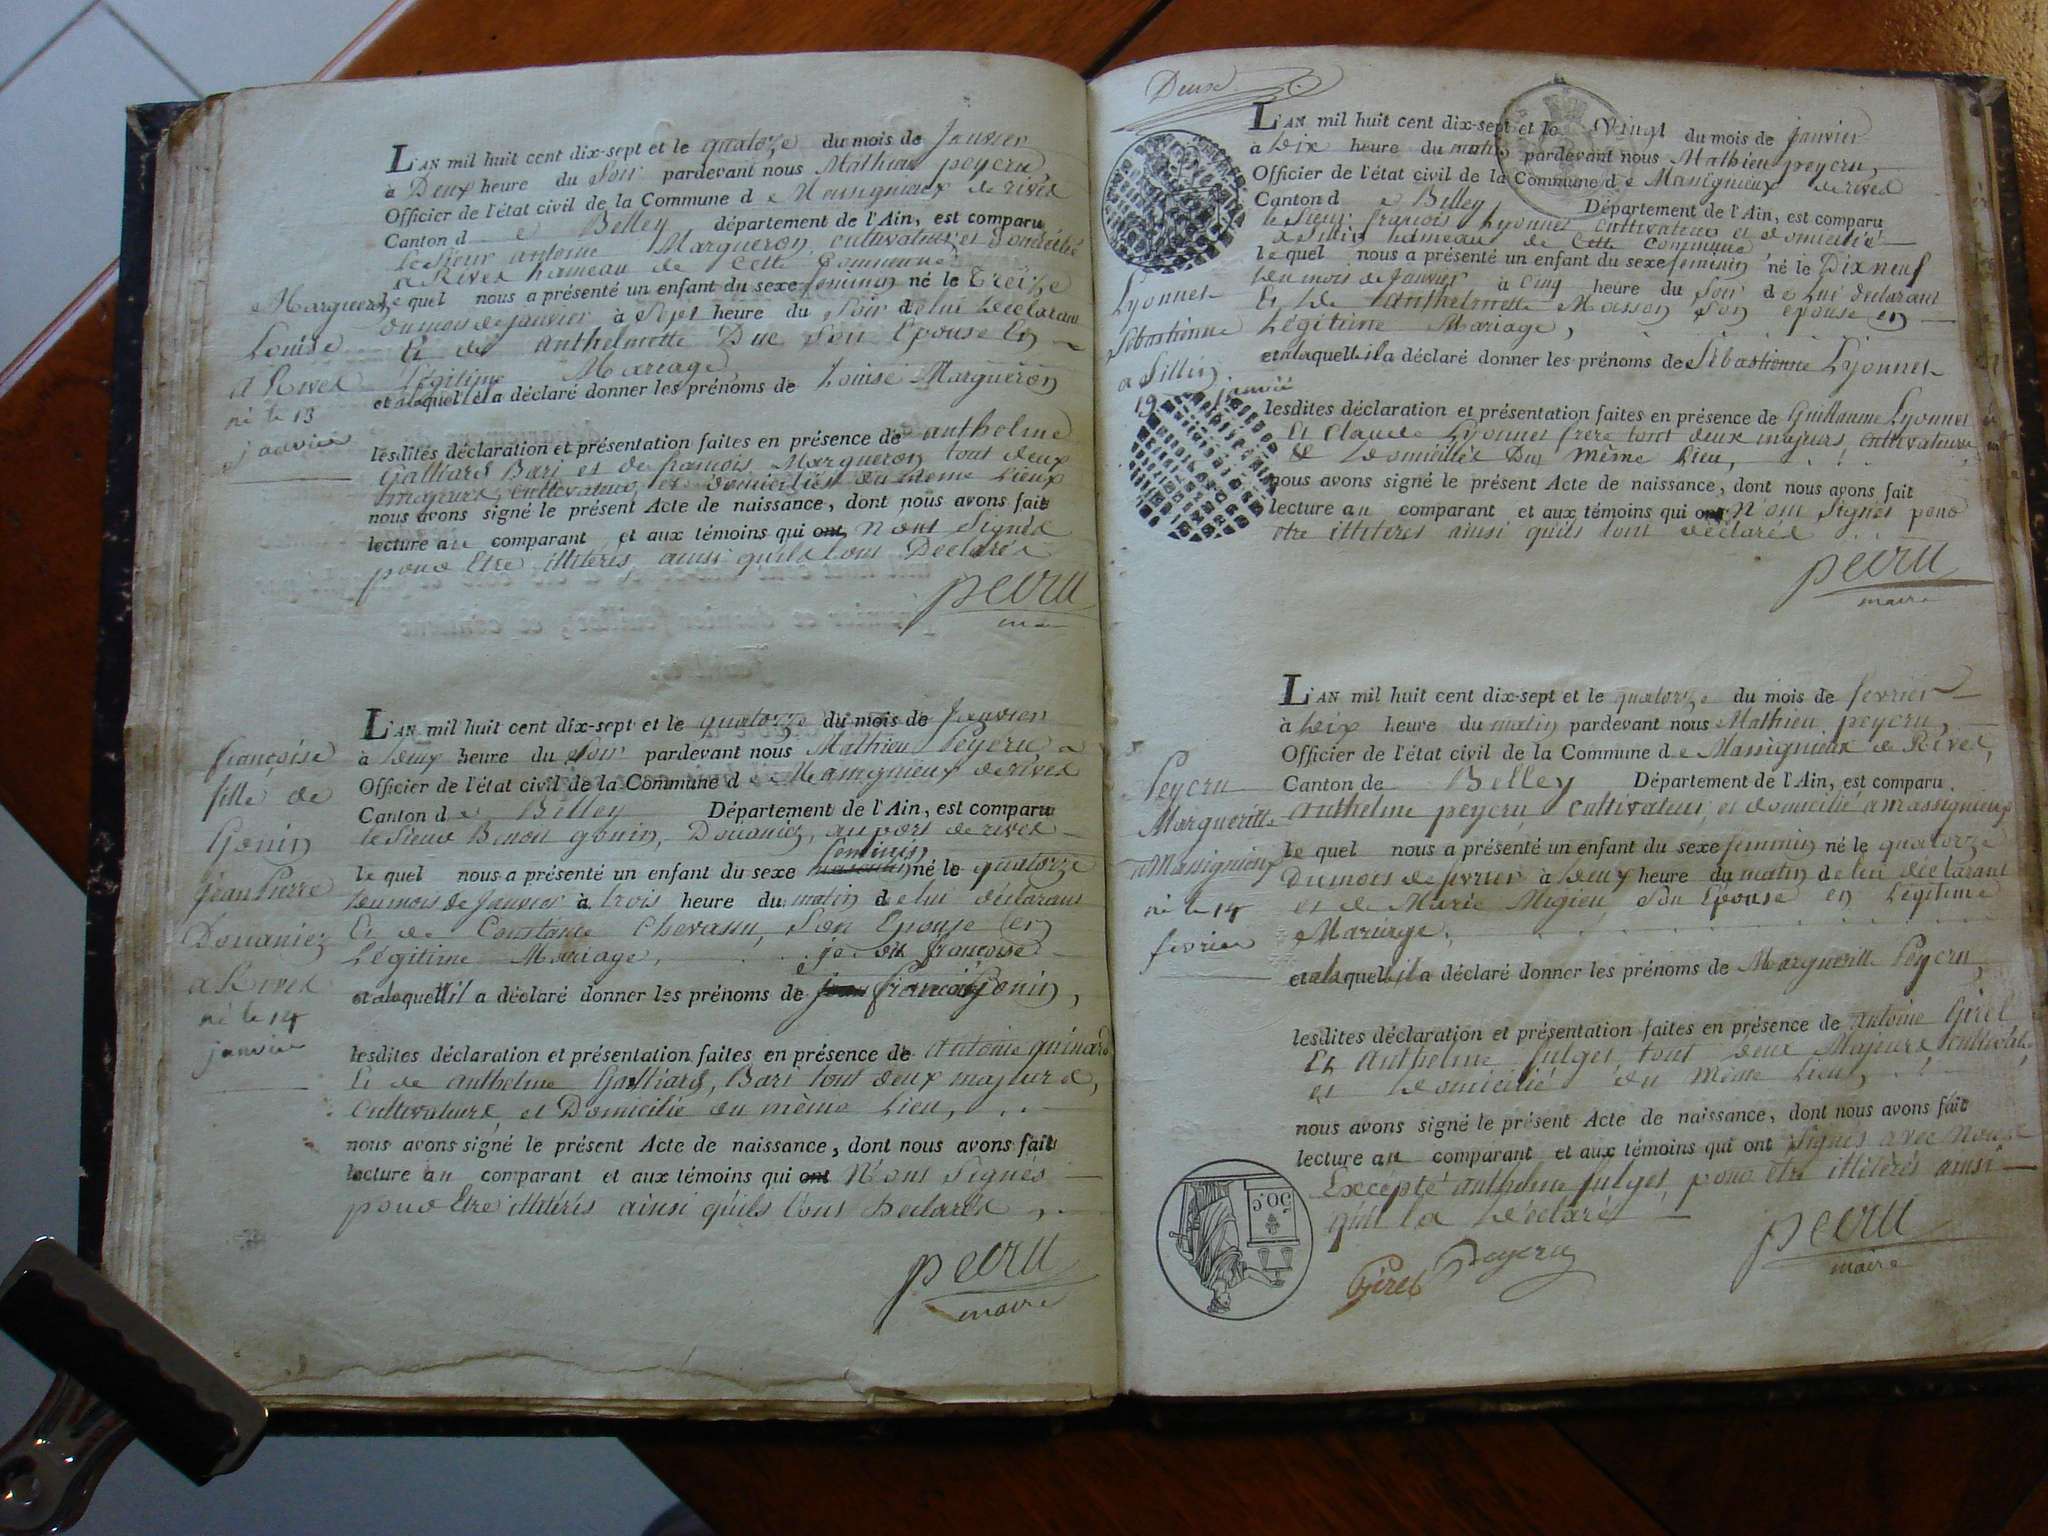 L'AN mil huit cent dix-sept et le quatorze du mois de Janvier
à Deux heure du Soir pardevant nous Mathieu peycru
Officier de l'état civil de la Commune d e Massignieux de rives
Canton d e Belley département de l'Ain, est comparu
le Sieur antoine Margueron cultivateur et domicilié
a Rives hameau de cette Commune
le quel nous a présenté un enfant du sexe feminin né le treize
du mois de janvier à Sept heure du Soir de lui declarant
Et de anthelmette Duc Son Epouse En
Légitime Mariage
et a laquelle il a déclaré donner les prénoms de Louise Margueron
lesdites déclaration et présentation faites en présence de anthelme
Galliard Bari et de francois Margueron tout deux
majeurs, cultivateurs et domiciliés du même Lieux
nous avons signé le présent Acte de naissance, dont nous avons fait
lecture au comparant et aux témoins qui ont N'ont Signés
pour Etre illitérés, ainsi quils lont Déclarés
peicru
Margueron
Louise
a Rives
né le 13
janvier
L'AN mil huit cent dix-sept et le quatorze du mois de Janvier
à deux heure du Soir pardevant nous Mathieu Peycru
Officier de l'état civil de la Commune d e Massignieux de rives
Canton d e Belley Département de l'Ain, est comparu
le Sieur Benoit gonin, Douanier, au port de rives
le quel nous a présenté un enfant du sexe masculin feminin né le quatorze
du mois de Janvier à trois heure du matin de lui déclarant
Et de Constance Son Epouse en
Légitime Mariage, je dit françoise
et a laquelle il a déclaré donner les prénoms de jean françoise Gonin,
lesdites déclaration et présentation faites en présence de Antoine quinard
Et de anthelme Galliard, Bari tout deux majeurs,
Cultivateurs, et Domicilié du même Lieu,
nous avons signé le présent Acte de naissance, dont nous avons fait
lecture au comparant et aux témoins qui ont N'ont Signés
pour Etre illitérés ainsi quils lont déclarés
peicru
maire
françoise
fille de
Gonin
jean Pierre
Douanier
a Rives
né le 14
janvier
Deux
L'AN mil huit cent dix-sept et le Vingt du mois de janvier
à dix heure du matin pardevant nous Mathieu peycru,
Officier de l'état civil de la Commune d e Massignieux de rives
Canton d e Belley Département de l'Ain, est comparu
le Sieur francois Lyonnet cultivateur et domicilié
a Sillin hameau de Cette Commune
le quel nous a présenté un enfant du sexe feminin né le Dixneuf
du mois de janvier à Cinq heure du Soir de Lui déclarant
Et de anthelmette Masson Son epouse en
Légitime Mariage,
et a laquelle il a déclaré donner les prénoms de Sébastienne Lyonnet
lesdites déclaration et présentation faites en présence de Guillaume Lyonnet
Et Claude Lyonnet frere tout deux majeurs, cultivateurs
& domiciliés du même Lieu,
nous avons signé le présent Acte de naissance, dont nous avons fait
lecture au comparant et aux témoins qui ont N'ont Signés pour
etre illiterés ainsi quils lont déclarés
peicru
maire
Lyonnet
Sébastienne
a Sillin
19 janvier
L'AN mil huit cent dix-sept et le quatorze du mois de fevrier
à dix heure du matin pardevant nous Mathieu peycru,
Officier de l'état civil de la Commune d e Massignieux de Rives,
Canton de Belley Département de l'Ain, est comparu
anthelme peycru cultivateur, et domicilié a massignieux
le quel nous a présenté un enfant du sexe feminin né le quatorze
du mois de fevrier à deux heure du matin de lui déclarant
et de Marie Migieu Son Epouse en Légitime
Mariage,
et a laquelle il a déclaré donner les prénoms de Margueritte Peycru,
lesdites déclaration et présentation faites en présence de antoine Girel
Et Anthelme fulget, tout deux Majeurs cultivat.
et domicilié du même Lieux,
nous avons signé le présent Acte de naissance, dont nous avons fait
lecture au comparant et aux témoins qui ont Signés avec Nous
Excepté anthelme fulget, pour etre illitérés ainsi
quil la déclaré
Girel Peycru
peicru
maire
Peycru
Margueritte
a Massignieux
né le 14
fevrier
50 C.